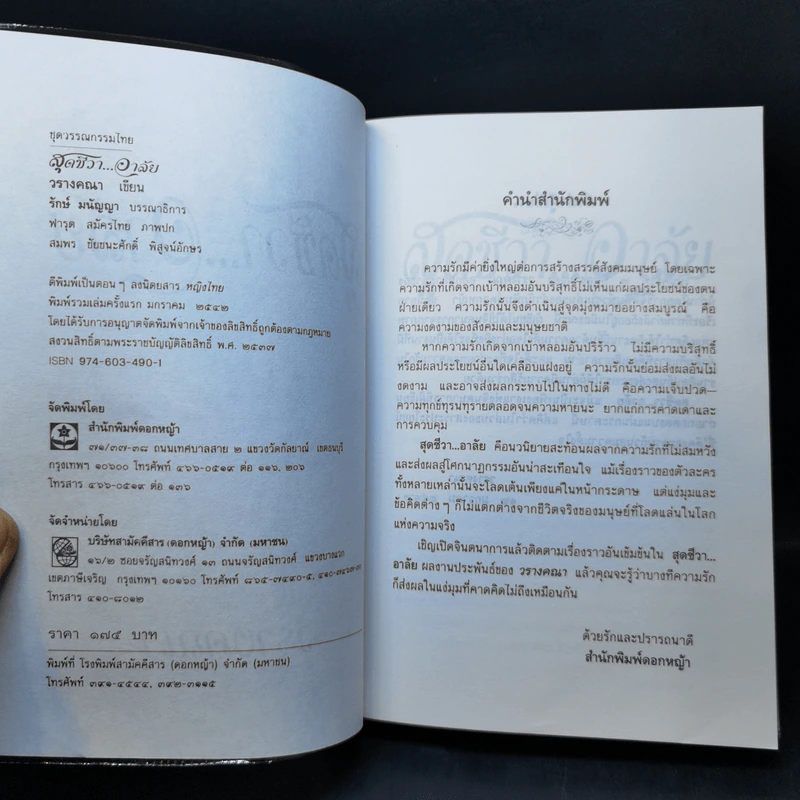 ชุดวรรณกรรมไทย
สุดชีวา...อาลัย
วรางคณา เขียน
รักษ์ มนัญญา บรรณาธิการ
ฟารุต สมัครไทย ภาพปก
สมพร ชัยชนะศักดิ์ พิสูจน์อักษร
ตีพิมพ์เป็นตอนๆ ลงนิตยสาร หญิงไทย
พิมพ์รวมเล่มครั้งแรก มกราคม ๒๕๔๒
โดยได้รับการอนุญาตจัดพิมพ์จากเจ้าของลิขสิทธิ์ถูกต้องตามกฎหมาย
สงวนสิทธิ์ตามพระราชบัญญัติลิขสิทธิ์ พ.ศ. ๒๕๓๗
ISBN 974-603-490-1
จัดพิมพ์โดย
สำนักพิมพ์ดอกหญ้า
๗๑/๓๗-๓๘ ถนนเทศบาลสาย ๒ แขวงวัดกัลยาณ์ เขตธนบุรี
กรุงเทพฯ ๑๐๖๐๐ โทรศัพท์ ๔๖๖-๐๕๑๙ ต่อ ๑๑๖, ๒๐๖
โทรสาร ๔๖๖-๐๕๑๙ ต่อ ๑๓๖
จัดจำหน่ายโดย
บริษัทสามัคคีสาร (ดอกหญ้า) จำกัด (มหาชน)
๑๖/๒ ซอยจรัญสนิทวงศ์ ๑๓ ถนนจรัญสนิทวงศ์ แขวงบางแวก
เขตภาษีเจริญ กรุงเทพฯ ๑๐๑๖๐ โทรศัพท์ ๘๖๕-๗๔๙๐-๕, ๔๑๐-๗๔๖๗-๗๑
โทรสาร ๔๑๐-๘๐๑๒
ราคา ๑๗๕ บาท
พิมพ์ที่ โรงพิมพ์สามัคคีสาร (ดอกหญ้า) จำกัด (มหาชน)
โทรศัพท์ ๓๙๑-๔๕๔๔, ๓๙๒-๓๑๑๕
คำนำสำนักพิมพ์
ความรักมีค่ายิ่งใหญ่ต่อการสร้างสรรค์สังคมมนุษย์ โดยเฉพาะ
ความรักที่เกิดจากเบ้าหลอมอันบริสุทธิ์ไม่เห็นแก่ผลประโยชน์ของตน
ฝ่ายเดียว ความรักนั้นจึงดำเนินสู่จุดมุ่งหมายอย่างสมบูรณ์ คือ
ความงดงามของสังคมและมนุษยชาติ
หากความรักเกิดจากเบ้าหลอมอันปริร้าว ไม่มีความบริสุทธิ์
หรือมีผลประโยชน์อื่นใดเคลือบแฝงอยู่ ความรักนั้นย่อมส่งผลอันไม่
งดงาม และอาจส่งผลกระทบไปในทางไม่ดี คือความเจ็บปวด—
ความทุกข์ทุรนทุรายตลอดจนความหายนะ ยากแก่การคาดเดาและ
การควบคุม
สุดชีวา...อาลัย คือนวนิยายสะท้อนผลจากความรักที่ไม่สมหวัง
และส่งผลสู่โศกนาฏกรรมอันน่าสะเทือนใจ แม้เรื่องราวของตัวละคร
ทั้งหลายเหล่านั้นจะโลดเต้นเพียงแค่ในหน้ากระดาษ แต่แง่มุมและ
ข้อคิดต่างๆ ก็ไม่แตกต่างจากชีวิตจริงของมนุษย์ที่โลดแล่นในโลก
แห่งความจริง
เชิญเปิดจินตนาการแล้วติดตามเรื่องราวอันเข้มข้นใน สุดชีวา...
อาลัย ผลงานประพันธ์ของ วรางคณา แล้วคุณจะรู้ว่าบางทีความรัก
ก็ส่งผลในแง่มุมที่คาดคิดไม่ถึงเหมือนกัน
ด้วยรักและปรารถนาดี
สำนักพิมพ์ดอกหญ้า